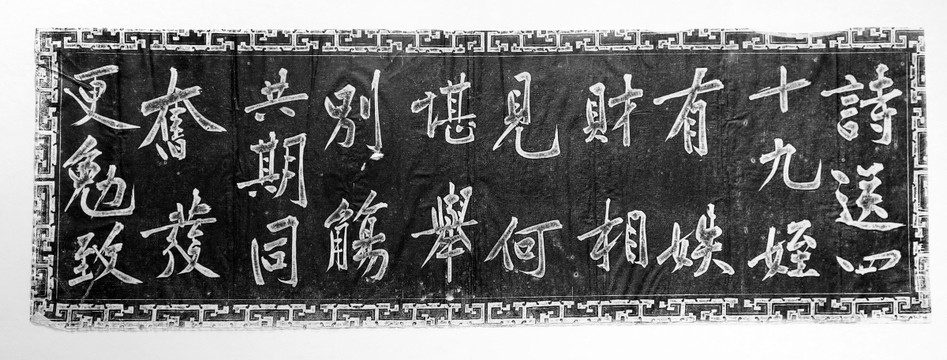 詩送四
十九姪
有娭
財相
見何
堪舉
別觴
共期同
奮發
更勉致